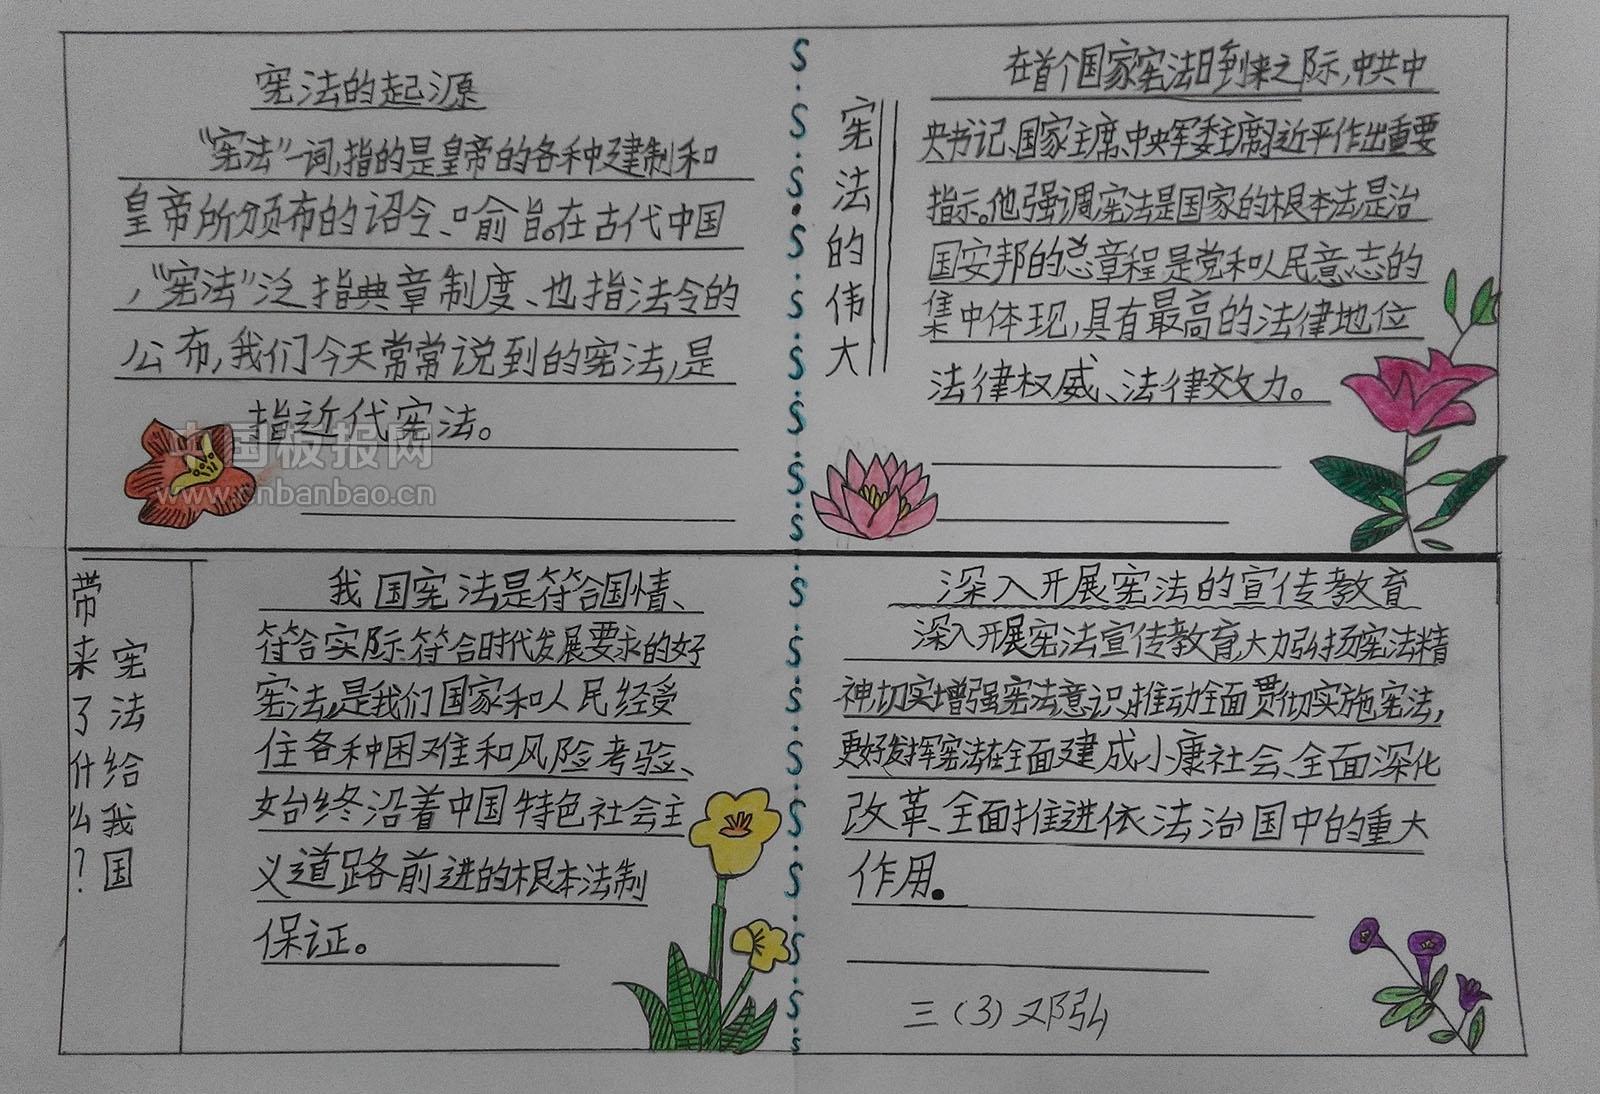 宪法的起源
"宪法"一词,指的是皇帝的各种建制和
皇帝所颁布的诏令、口喻旨。在古代中国
,"宪法"泛指典章制度、也指法令的
公布,我们今天常常说到的宪法,是
指近代宪法。
中国板报网
www.cnbanbao.cn
宪法的伟大
在首个国家宪法日到来之际,中共中
央书记、国家主席、中央军委主席习近平作出重要
指示。他强调宪法是国家的根本法是治
国安邦的总章程是党和人民意志的
集中体现,具有最高的法律地位
法律权威、法律效力。
宪法给我国
带来了什么?
我国宪法是符合国情、
符合实际、符合时代发展要求的好
宪法,是我们国家和人民经受
住各种困难和风险考验、
始终沿着中国特色社会主
义道路前进的根本法制
保证。
深入开展宪法的宣传教育
深入开展宪法宣传教育,大力弘扬宪法精
神,切实增强宪法意识,推动全面贯彻实施宪法,
更好发挥宪法在全面建成小康社会、全面深化
改革、全面推进依法治国中的重大
作用。
三(3)邓弘